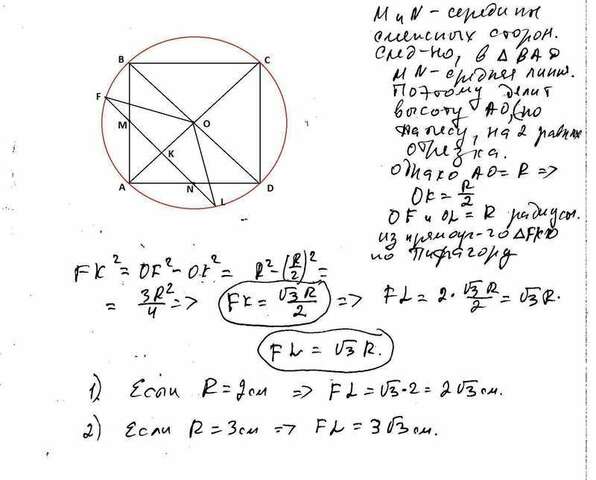 M и N - середины
смежных сторон.
След-но, в △ BAD
MN - средняя линия.
Поэтому делит
высоту AO, (по
Фалесу, на 2 равных
отрезка.
Однако AO = R =>
OK = R/2
OF и OL = R радиусы.
из прямоуг-го △FKO
по Пифагору
B
C
F
M
O
K
A
N
D
L
FK² = OF² - OK² = R² - (R/2)² =
= 3R²/4 => FK = √3 R/2 => FL = 2 · √3 R/2 = √3 R.
FL = √3 R.
1) Если R = 2 см => FL = √3 · 2 = 2√3 см.
2) Если R = 3 см => FL = 3√3 см.